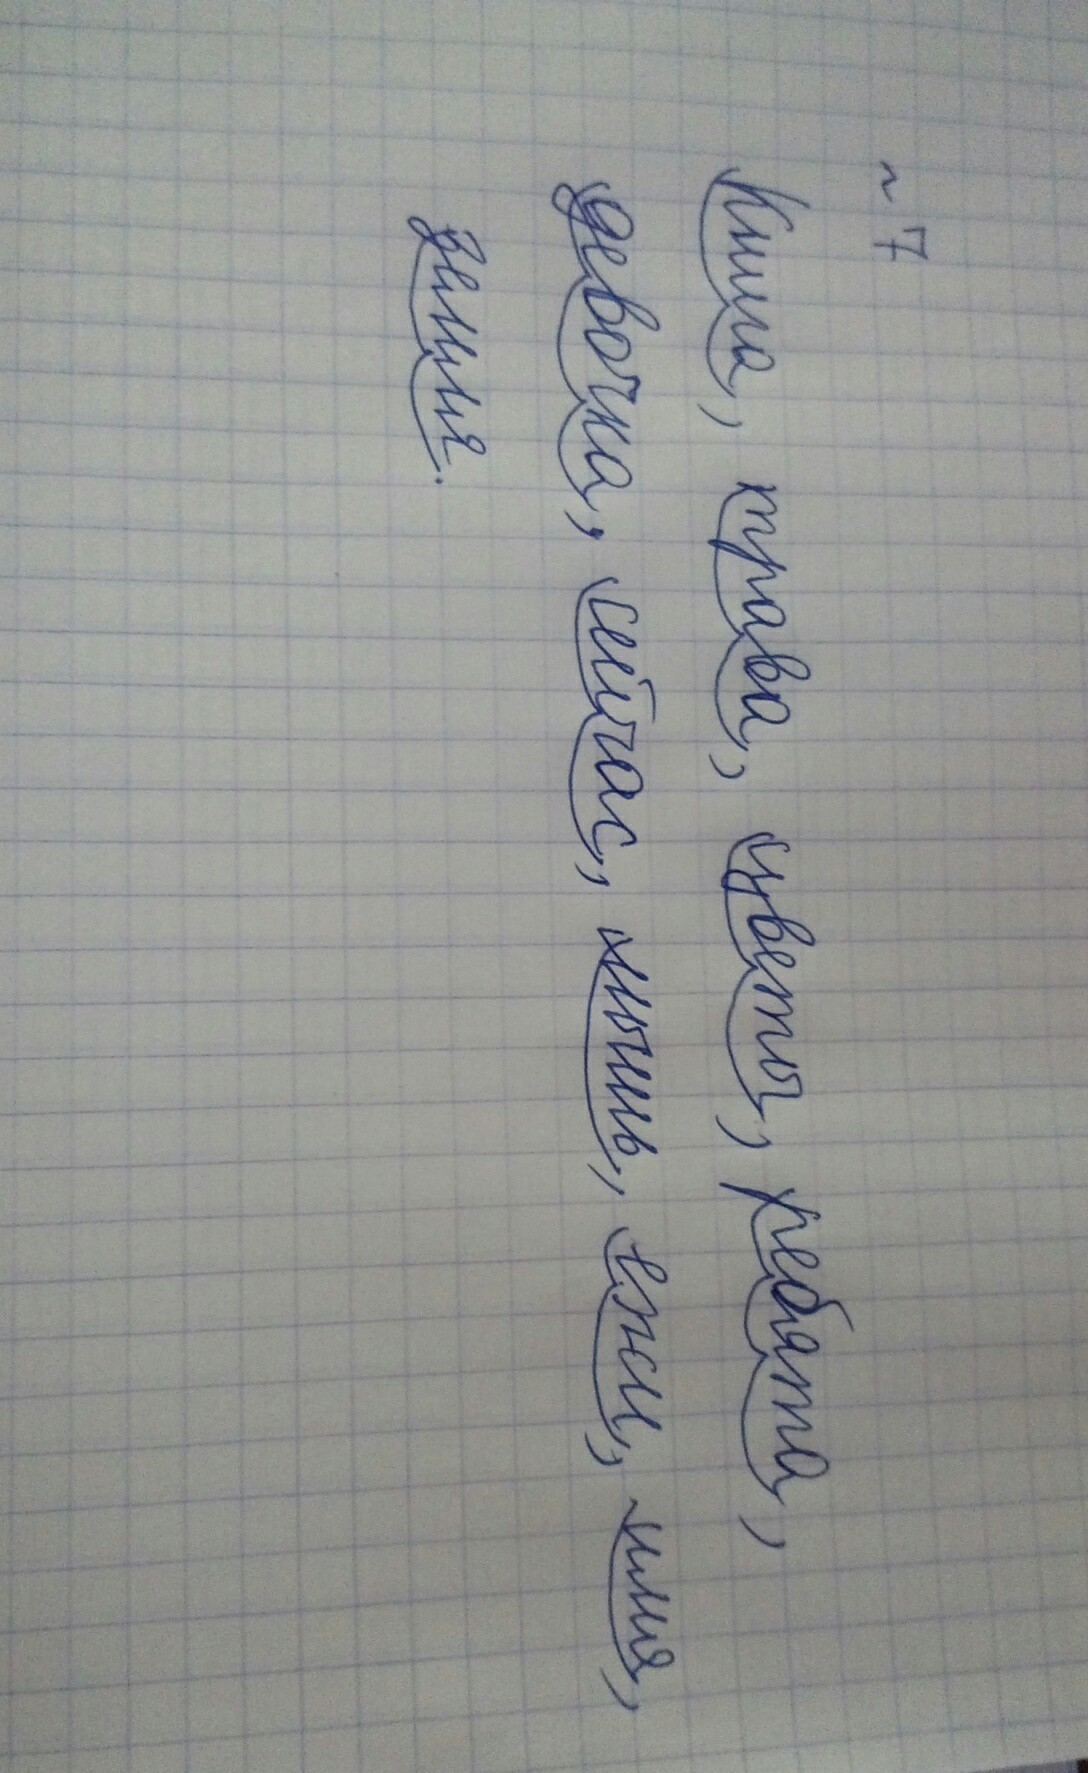 ~ 7
Книга, трава, цветы, ребята,
девочка, сейчас, мышь, ежи, имя,
земля.